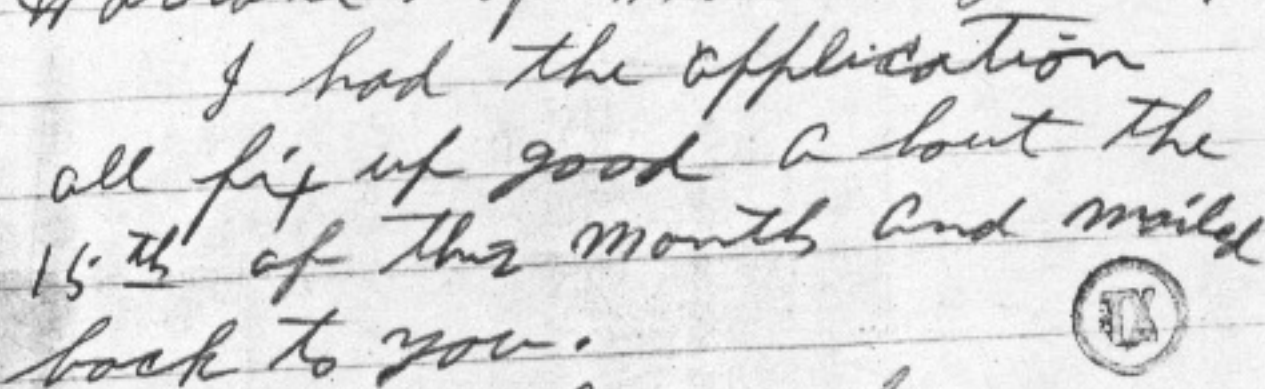 I had the application
all fix up good a bout the
15th of this month and maild
back to you.